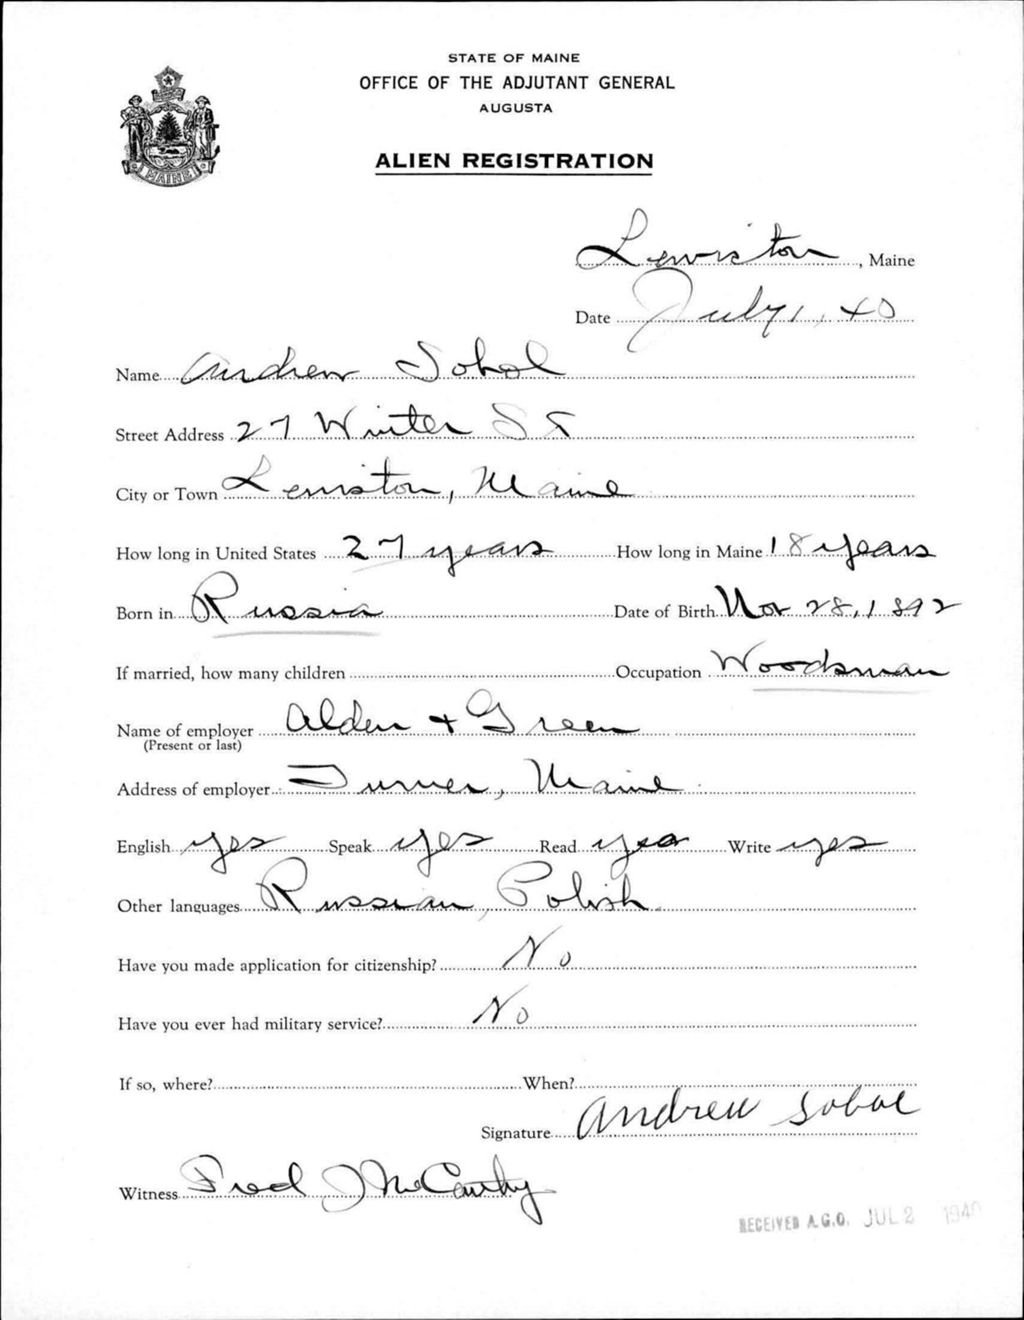 STATE OF MAINE
OFFICE OF THE ADJUTANT GENERAL
AUGUSTA
ALIEN REGISTRATION
MAINE
Lewiston, Maine
Date July 1, 40
Name Andrew Sobol
Street Address 27 Winter St
City or Town Lewiston, Maine
How long in United States 27 years How long in Maine 18 years
Born in Russia Date of Birth Nov 28, 1892
If married, how many children Occupation Woodsman
Name of employer Alden + Green
(Present or last)
Address of employer Turner, Maine
English yes Speak yes Read yes Write yes
Other languages Russian, Polish
Have you made application for citizenship? No
Have you ever had military service? No
If so, where? When?
Signature Andrew Sobol
Witness Fred J McCarthy
RECEIVED A.G.O. JUL 2 1940